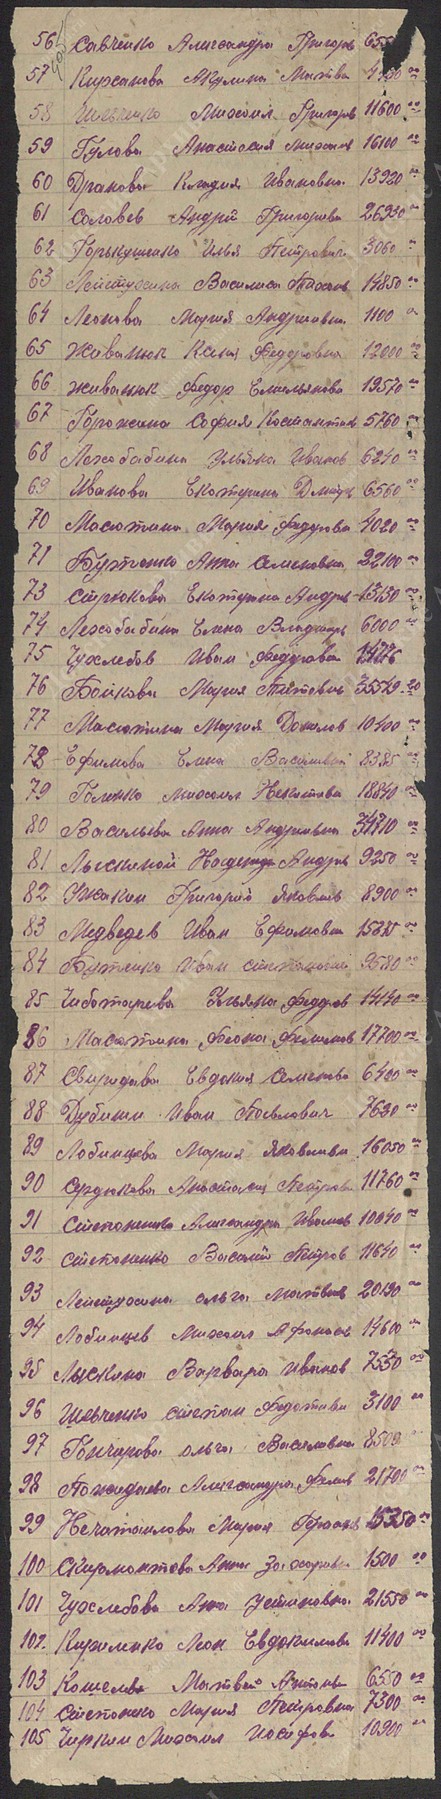 56 Савченко Александра Григор
57 Кирсанова Акулина Матве
58 Шевченко Михаил Григор 11600
59 Гулова Анастасия 16100
60 Дранова Клавдия Ивановна 13920
61 Соловев Андрей Григорьева 26930
62 Горькушенко Илья Петрович 3060
63 Василиса 14850
64 Леонова Мария Андреевна 1100
65 Живанюк Ксения Федоровна 12000
66 Живанюк Федор Емельянова 19570
67 София Костантин 5760
68 Лехобабина Ульяна Иванов 6240
69 Иванова Екатерина Дмитр 6560
70 Масютина Мария Федорова 4020
71 Бутенко Анна Семеновна 22100
73 Стрюкова Екатерина Андре 13150
74 Лехобабина Елена Владимир 6000
75 Чухлебов Иван Федорова
76 Бойкова Мария 35529 20
77 Масютина Мария 10400
78 Ефимова Елена Василивна 8385
79 Голенко Михаил Никитова 18840
80 Васильева Анна Андреевна
81 Надежда Андре 9250
82 Ужакин Григорий Яковлев 8900
83 Медведев Иван Ефимович
84 Бутенко Иван Степанович 9680
85 Чеботарева Ульяна Федор 14140
86 Масютина Феона Филипов 17700
87 Свиридова Евдокия Семенова 6400
88 Дубинин Иван Павлович 7630
89 Лобинцева Мария Яковлевна 16050
90 Сердюкова Анастасия Петров 11760
91 Степаненко Александра Иванов 10640
92 Степаненко Василий Петров 11640
93 Ольга Матвев 20190
94 Лобинцев Михаил Афанасев 14600
95 Лыскина Варвара Иванов 7550
96 Шевченко Степан Федотович 3100
97 Гончарова Ольга Василевна 8500
98 Пожидаева Александра 21700
99 Нечаталова Мария 15350
100 Анна Захаровн 1500
101 Чухлебова Анна Устиновна 21550
102. Кириленко Леон Евдокимова 11400
103 Кошелев Матвей Антонов 6550
104 Степаненко Мария Петровна 7300
105 Чиркин Михаил Иосифов 10900